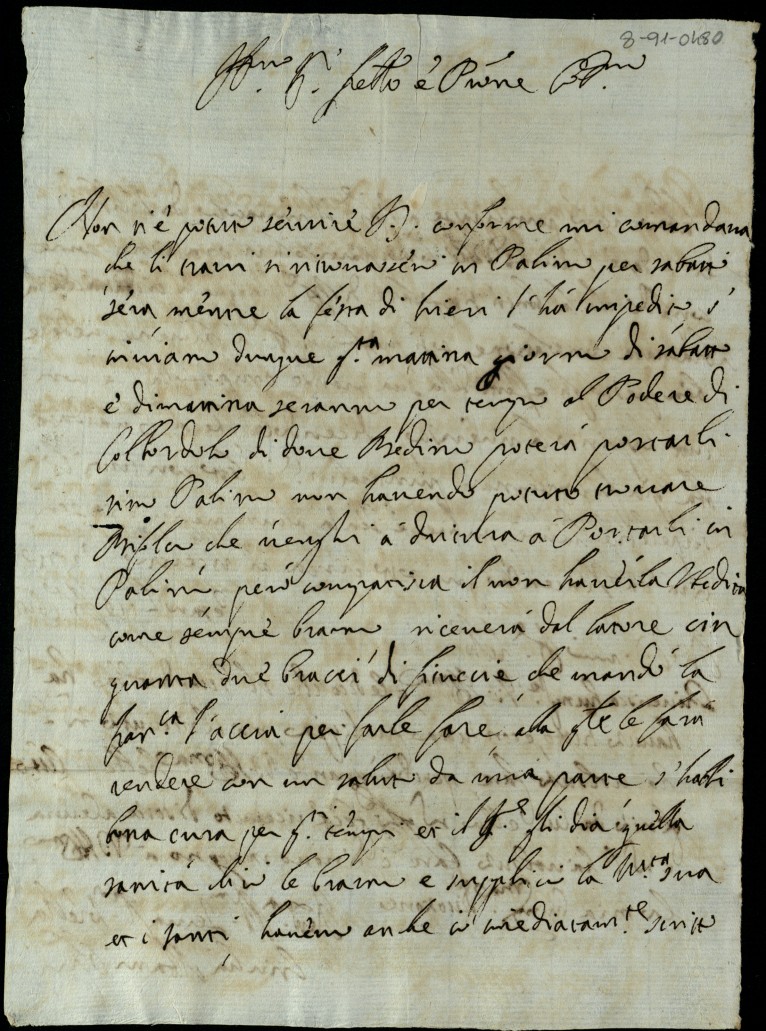 8-91-0480
Ill.mo S.r fratello e P'rone
Non si è potuto servire V.S. conforme mi comandava
che li travi si ritrovaseri in Palino per sabato
séra méntre la festa di hieri l'hà impedito, s'
inviano dunque q.ta mattina giorno di sabato
e dimattina seranno per tempo al Podere di
di dove potera portarli
sino Palino non havendo potuto trovare
che venghi à dirittura à Portarli in
Palino però compatisca il non haverla
come sémpré bramo riceverà dal latore cin
quanta dué bracci di che mandò la
fran.ca l'accia per farle fare alla q.le le farà
rendere con un saluto da mia parte s'habbi
bona cura per q.ti témpi et il S.re gli dia quélla
sanità ch'io le bramo e supplico la M.tà sua
et i santi havémo anche scritto